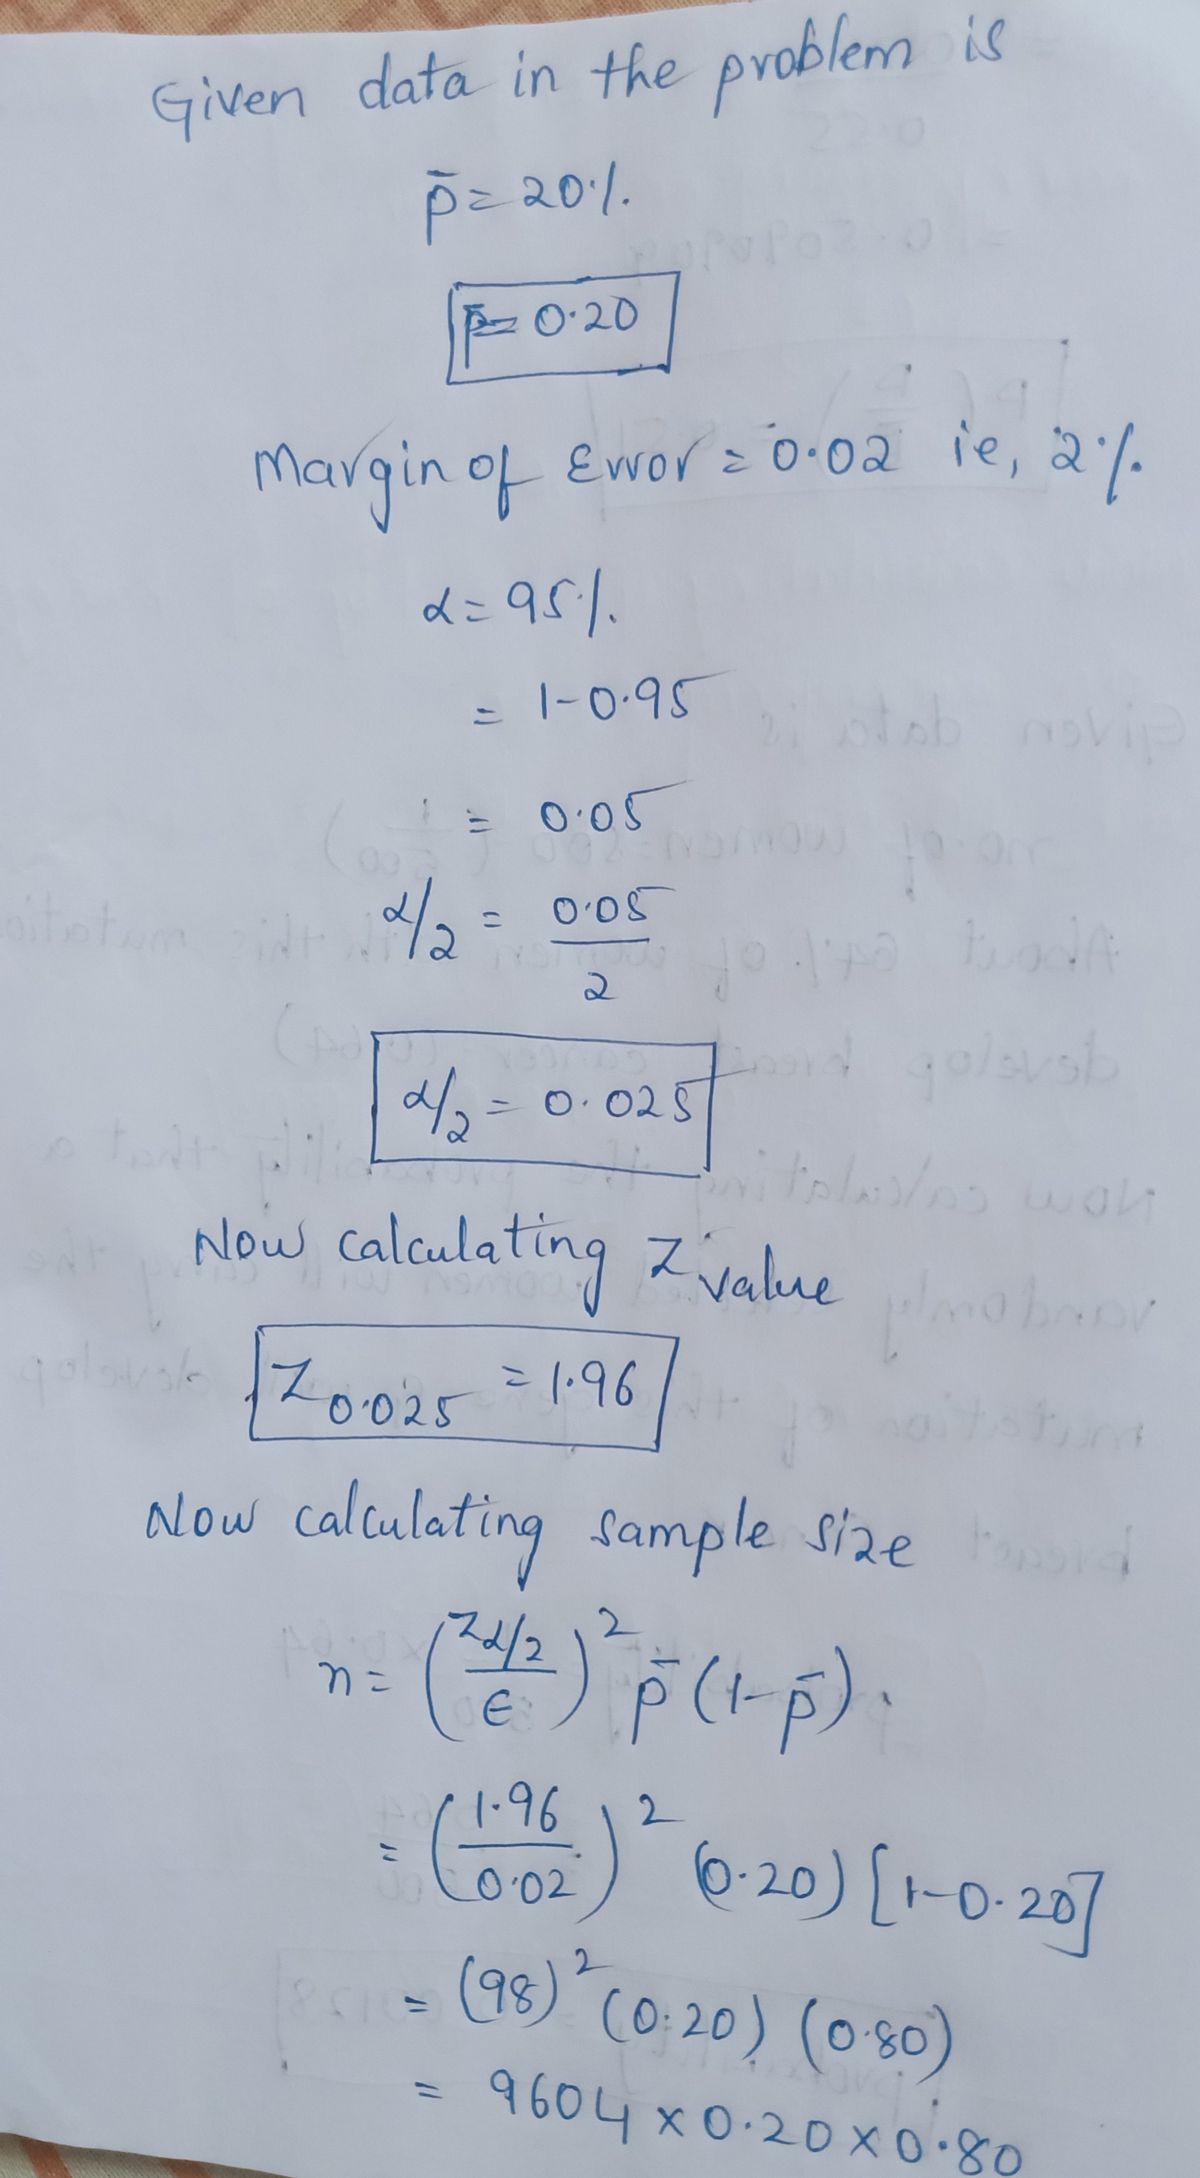 Given data in the problem is
p̄ = 20%.
p̄ = 0.20
Margin of Error = 0.02 ie, 2%.
α = 95%.
= 1-0.95
= 0.05
α/2 = 0.05/2
α/2 = 0.025
Now calculating Z value
Z0.025 = 1.96
Now calculating sample size
n = (Zα/2/ϵ)² p̄ (1-p̄).
= (1.96/0.02)² (0.20) [1-0.20]
= (98)² (0.20) (0.80)
= 9604 × 0.20 × 0.80